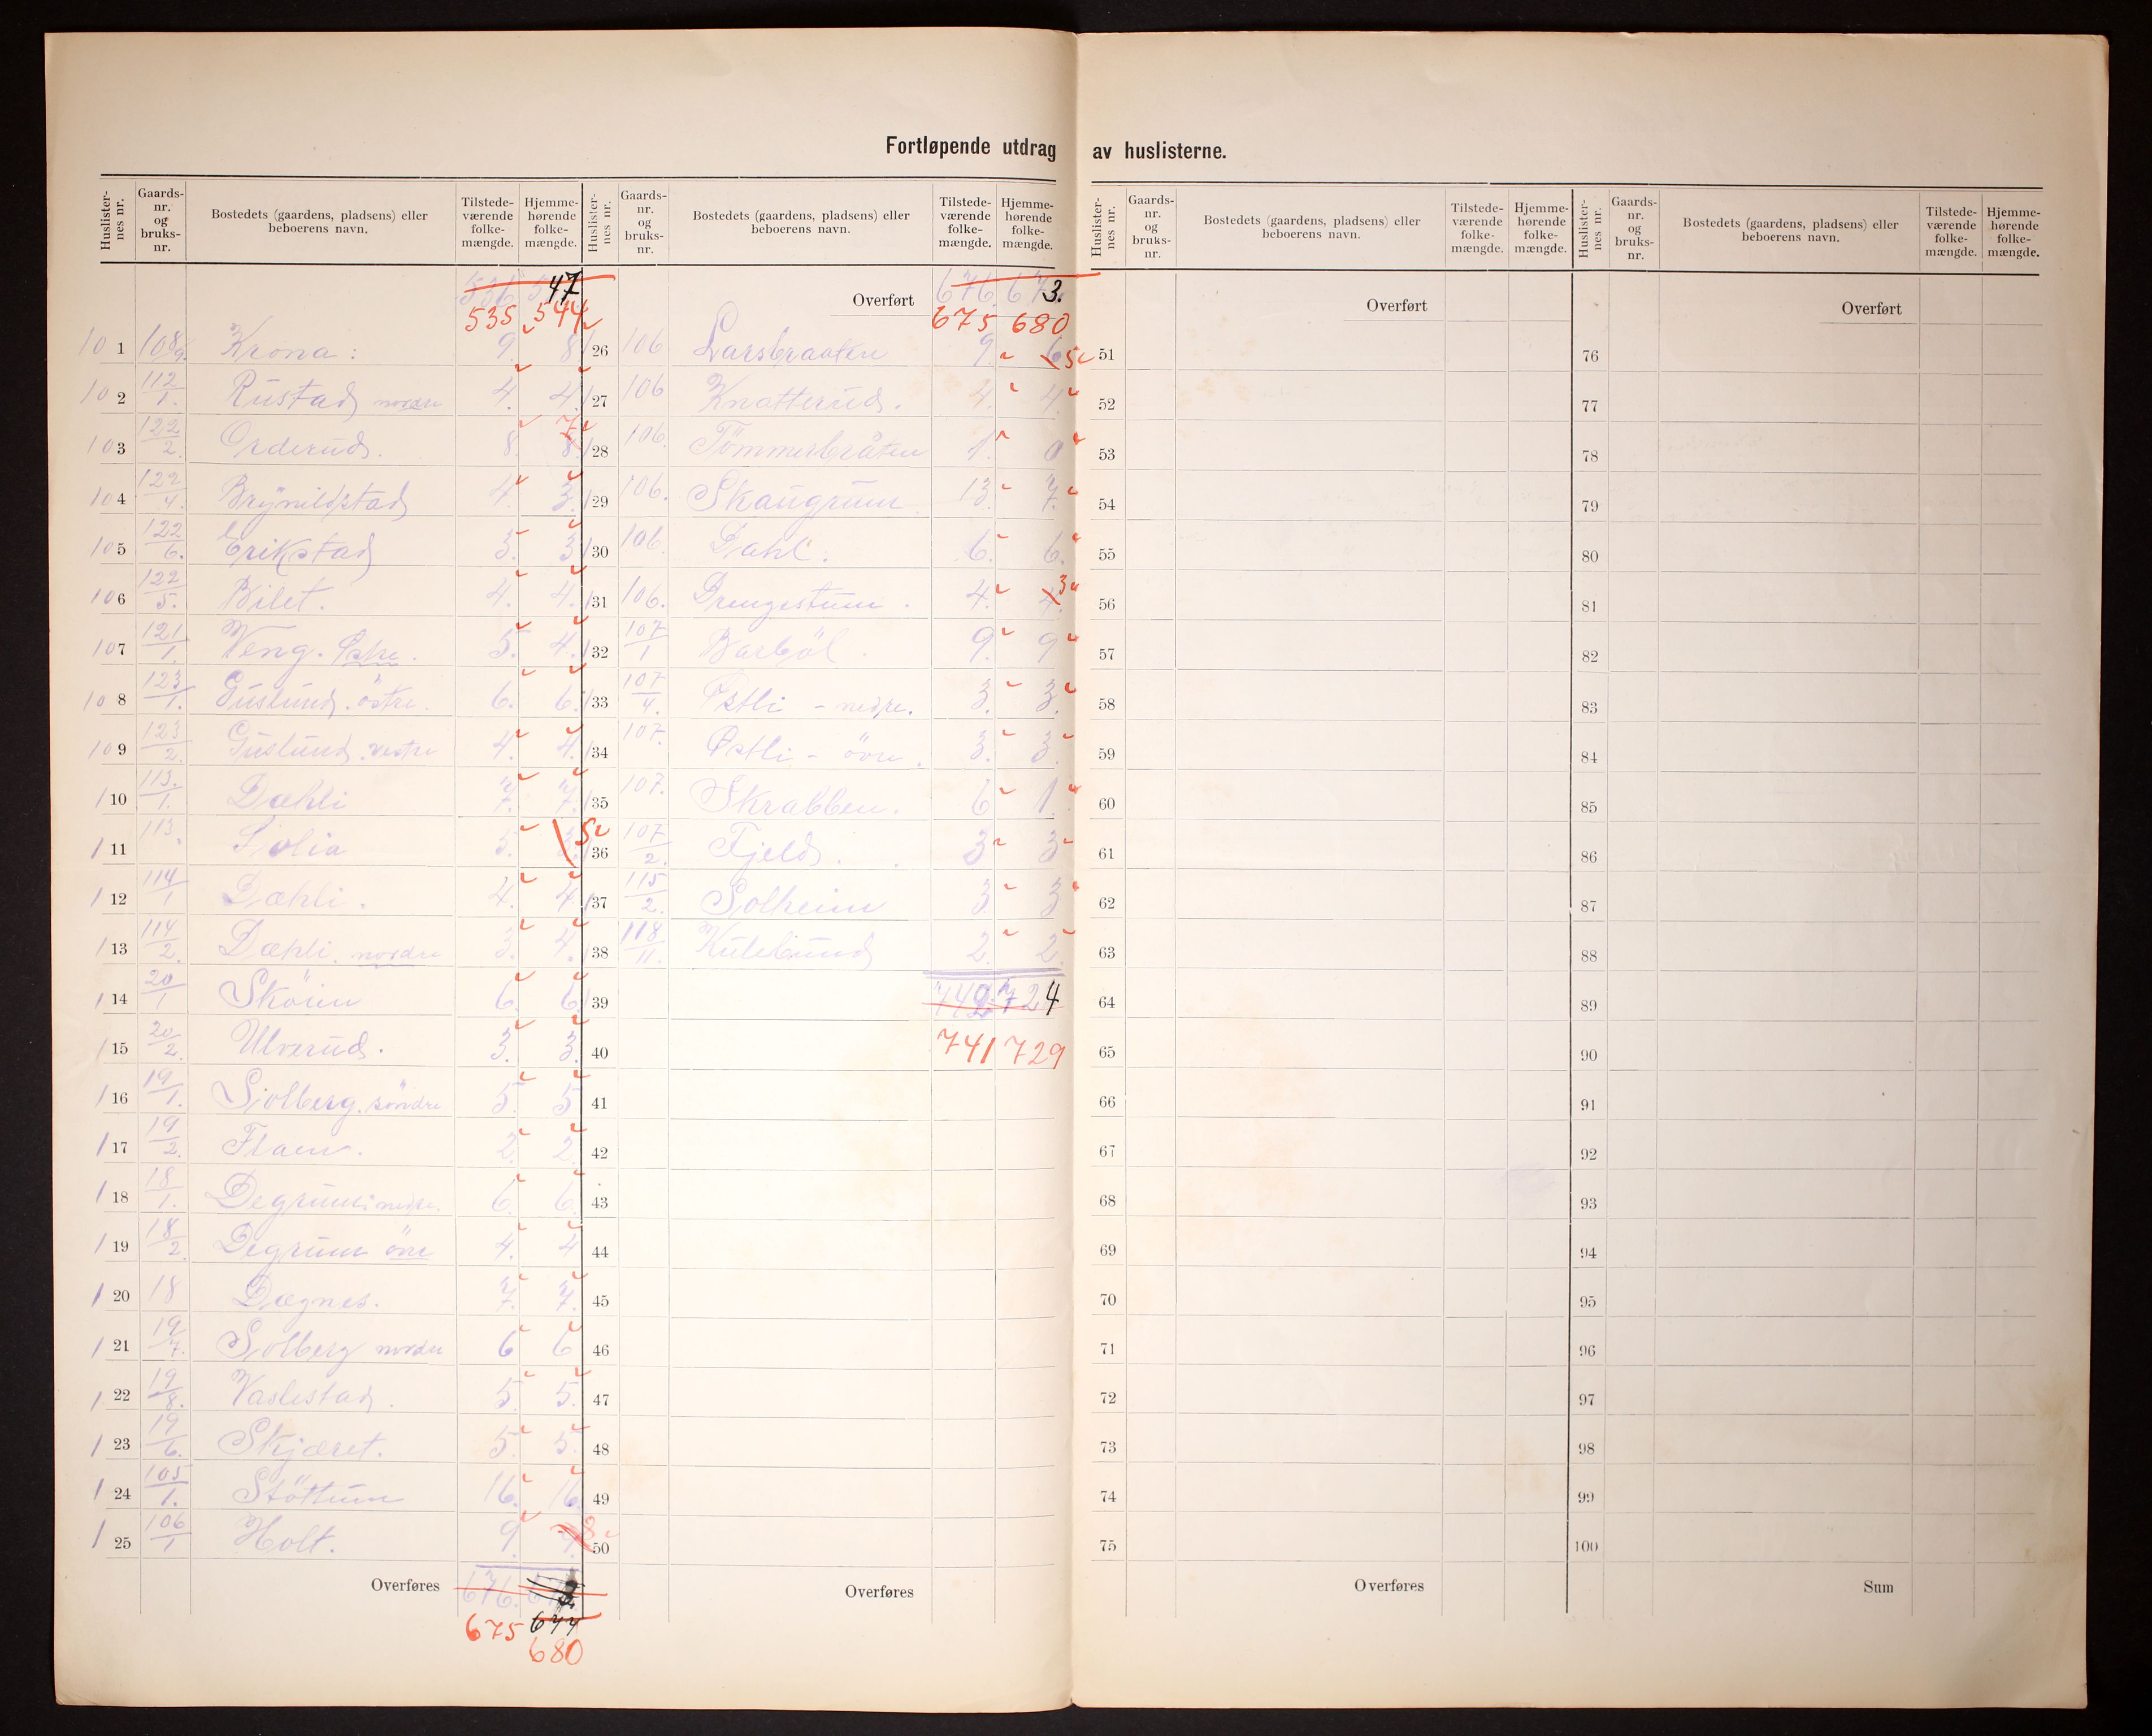 Fortløpende utdrag av huslisterne.
Huslister-nes nr. Gaards-nr. og bruks-nr. Bostedets (gaardens, pladsens) eller beboerens navn. Tilstede-værende folke-mængde. Hjemme-hørende folke-mængde.
47
535 544
101 108/9 Krona: 9. 8
102 112/1. Rustad nordre 4. 4.
103 122/2. Orderud. 8. 8. 7
104 122/4. Brynildstad 4. 3.
105 122/6. Erikstad 3. 3
106 122/5. Bilet. 4. 4.
107 121/1. Veng. 5. 4.
108 123/1. Guslund. östre. 6. 6.
109 123/2. Guslund. vestre 4. 4.
110 113./1. Dæhli 7. 7.
111 113. Solia 5. 5
112 114/1 Dæhli. 4. 4
113 114/2. Dæhli. nordre 3. 4.
114 20/1 Skoim 6. 6.
115 20/2. Ulverud. 3. 3.
116 19/1. Solberg. söndre 5. 5
117 19/2. Flaen. 2. 2.
118 18/1. Degrum nedre. 6. 6.
119 18/2. Degrum övre 4. 4
120 18 Dægnes. 7. 7.
121 19/7. Solberg nordre 6 6
122 19/8. Vaslestad. 5. 5.
123 19/6. Skjæret. 5. 5.
124 105/1. Støttum 16. 16.
125 106/1 Holt. 9. 9. 8
Overføres 676.
675 677
680
Huslister-nes nr. Gaards-nr. og bruks-nr. Bostedets (gaardens, pladsens) eller beboerens navn. Tilstede-værende folke-mængde. Hjemme-hørende folke-mængde.
Overført 676. 673.
675 680
126 106 Larsbraaten 9. 6 5
127 106 Knatterud. 4. 4.
128 106. Tömmerbråten 1. 0
129 106. Skaugrum 13. 7.
130 106. Dahl. 6. 6.
131 106. Drengestum. 4. 4. 3
132 107/1 Barböl. 9. 9
133 107/4. Østli - nedre. 3. 3.
134 107. Østli - övre. 3. 3.
135 107. Skrabben. 6 1.
136 107/2. Fjeld. 3 3
137 115/2. Solheim 3. 3
138 118/11. Kulebund 2. 2.
139 742. 724
40 741 729
41
42
43
44
45
46
47
48
49
50
Overføres
Huslister-nes nr. Gaards-nr. og bruks-nr. Bostedets (gaardens, pladsens) eller beboerens navn. Tilstede-værende folke-mængde. Hjemme-hørende folke-mængde.
Overført
51
52
53
54
55
56
57
58
59
60
61
62
63
64
65
66
67
68
69
70
71
72
73
74
75
Overføres
Huslister-nes nr. Gaards-nr. og bruks-nr. Bostedets (gaardens, pladsens) eller beboerens navn. Tilstede-værende folke-mængde. Hjemme-hørende folke-mængde.
Overført
76
77
78
79
80
81
82
83
84
85
86
87
88
89
90
91
92
93
94
95
96
97
98
99
100
Sum